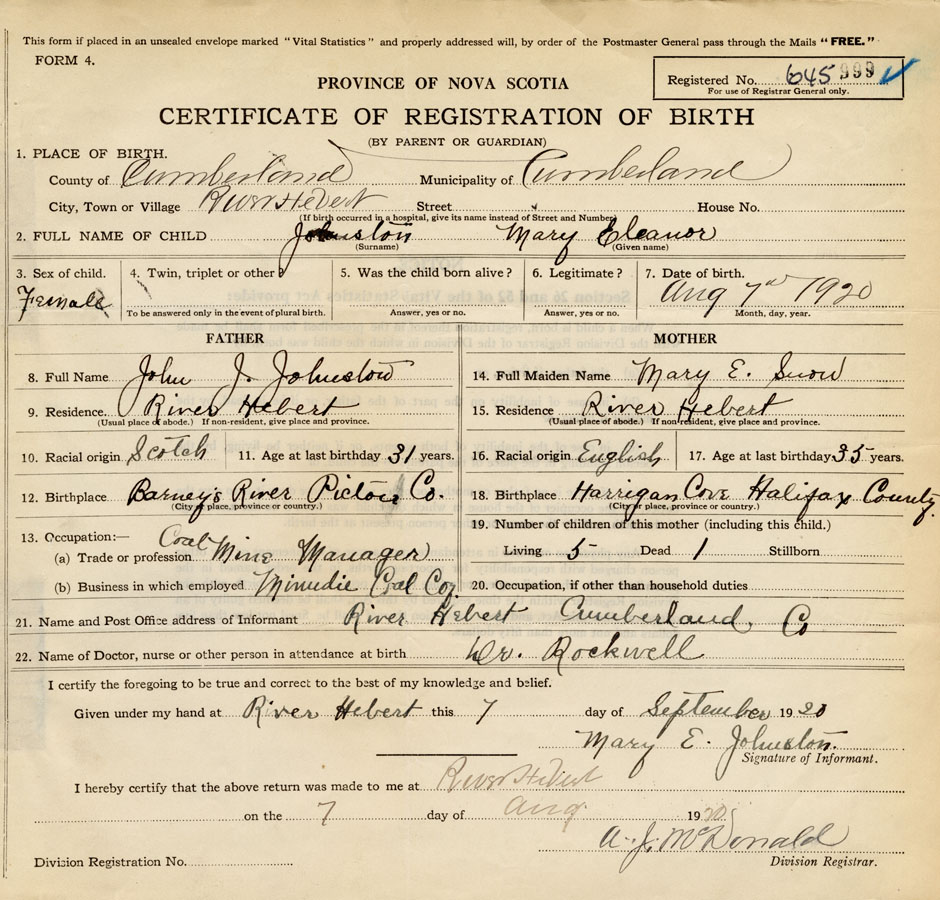 This form if placed in an unsealed envelope marked "Vital Statistics" and properly addressed will, by order of the Postmaster General pass through the Mails "FREE."
FORM 4.
Registered No. 645 999 ✓
For use of Registrar General only.
PROVINCE OF NOVA SCOTIA
CERTIFICATE OF REGISTRATION OF BIRTH
(BY PARENT OR GUARDIAN)
1. PLACE OF BIRTH.
County of Cumberland Municipality of Cumberland
City, Town or Village River Hebert Street House No.
(If birth occurred in a hospital, give its name instead of Street and Number)
2. FULL NAME OF CHILD Johnston Mary Eleanor
(Surname) (Given name)
3. Sex of child. 4. Twin, triplet or other? 5. Was the child born alive? 6. Legitimate? 7. Date of birth.
Female Aug 7th 1920
To be answered only in the event of plural birth. Answer, yes or no. Answer, yes or no. Month, day, year.
FATHER MOTHER
8. Full Name John J. Johnston 14. Full Maiden Name Mary E. Snow
9. Residence. River Hebert 15. Residence River Hebert
(Usual place of abode.) If non-resident, give place and province. (Usual place of abode.) If non-resident, give place and province.
10. Racial origin Scotch 11. Age at last birthday 31 years. 16. Racial origin English 17. Age at last birthday 35 years.
12. Birthplace Barney's River Pictou Co. 18. Birthplace Harrigan Cove Halifax County.
(City or place, province or country.) (City or place, province or country.)
19. Number of children of this mother (including this child.)
13. Occupation:—
(a) Trade or profession Coal Mine Manager Living 5 Dead 1 Stillborn
(b) Business in which employed Minudie Coal Coy 20. Occupation, if other than household duties
21. Name and Post Office address of Informant River Hebert Cumberland Co
22. Name of Doctor, nurse or other person in attendance at birth Dr. Rockwell
I certify the foregoing to be true and correct to the best of my knowledge and belief.
Given under my hand at River Hebert this 7 day of September 1920
Mary E. Johnston.
Signature of Informant.
I hereby certify that the above return was made to me at River Hebert
on the 7 day of Aug 1920
A. J. McDonald
Division Registration No. Division Registrar.